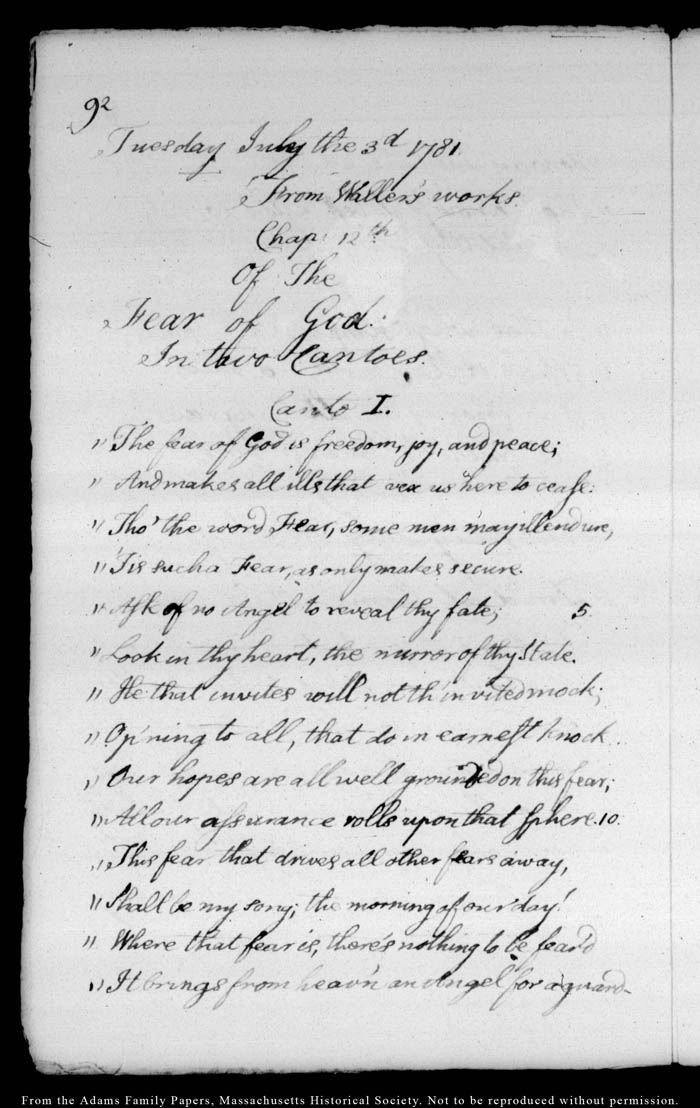 92
Tuesday July the 3d 1781.
From Waller's works.
Chap: 12th
Of The
Fear of God:
In two Cantoes.
Canto I.
" The fear of God is freedom, joy, and peace;
" And makes all ills that vex us here to cease:
" Tho' the word Fear, some men may ill endure,
" 'Tis such a Fear, as only makes secure.
" Ask of no Angel to reveal thy fate; 5.
" Look in thy heart, the mirror of thy State.
" He that invites will not th' invited mock;
" Op'ning to all, that do in earnest knock.
" Our hopes are all well grounded on this fear;
" All our assurance rolls upon that sphere. 10.
" This fear that drives all other fears away,
" Shall be my song; the morning of our day!
" Where that fear is, there's nothing to be fear'd
" It brings from heav'n an Angel for a guard
From the Adams Family Papers, Massachusetts Historical Society. Not to be reproduced without permission.